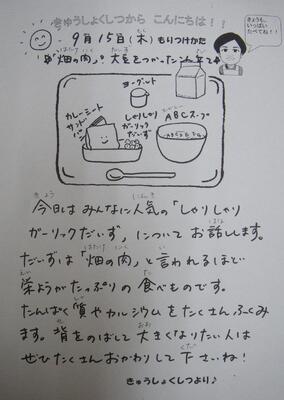 きゅうしょくしつから こんにちは！！
きょうも、
いっぱい
たべてね！！
9月15日(木) もりつけかた
"畑の肉"？ 大豆をつかったこんだて
ヨーグルト
カレーミート
サンド
パン
しゃりしゃり
ガーリック
だいず
ABCスープ
今日は みんなに人気の「しゃりしゃり
ガーリックだいず」についてお話します。
だいずは「畑の肉」と言われるほど
栄ようがたっぷりの食べものです。
たんぱく質やカルシウムをたくさんふくみ
ます。背をのばして大きくなりたい人は
ぜひたくさんおかわりして下さいね！
きゅうしょくしつより♪